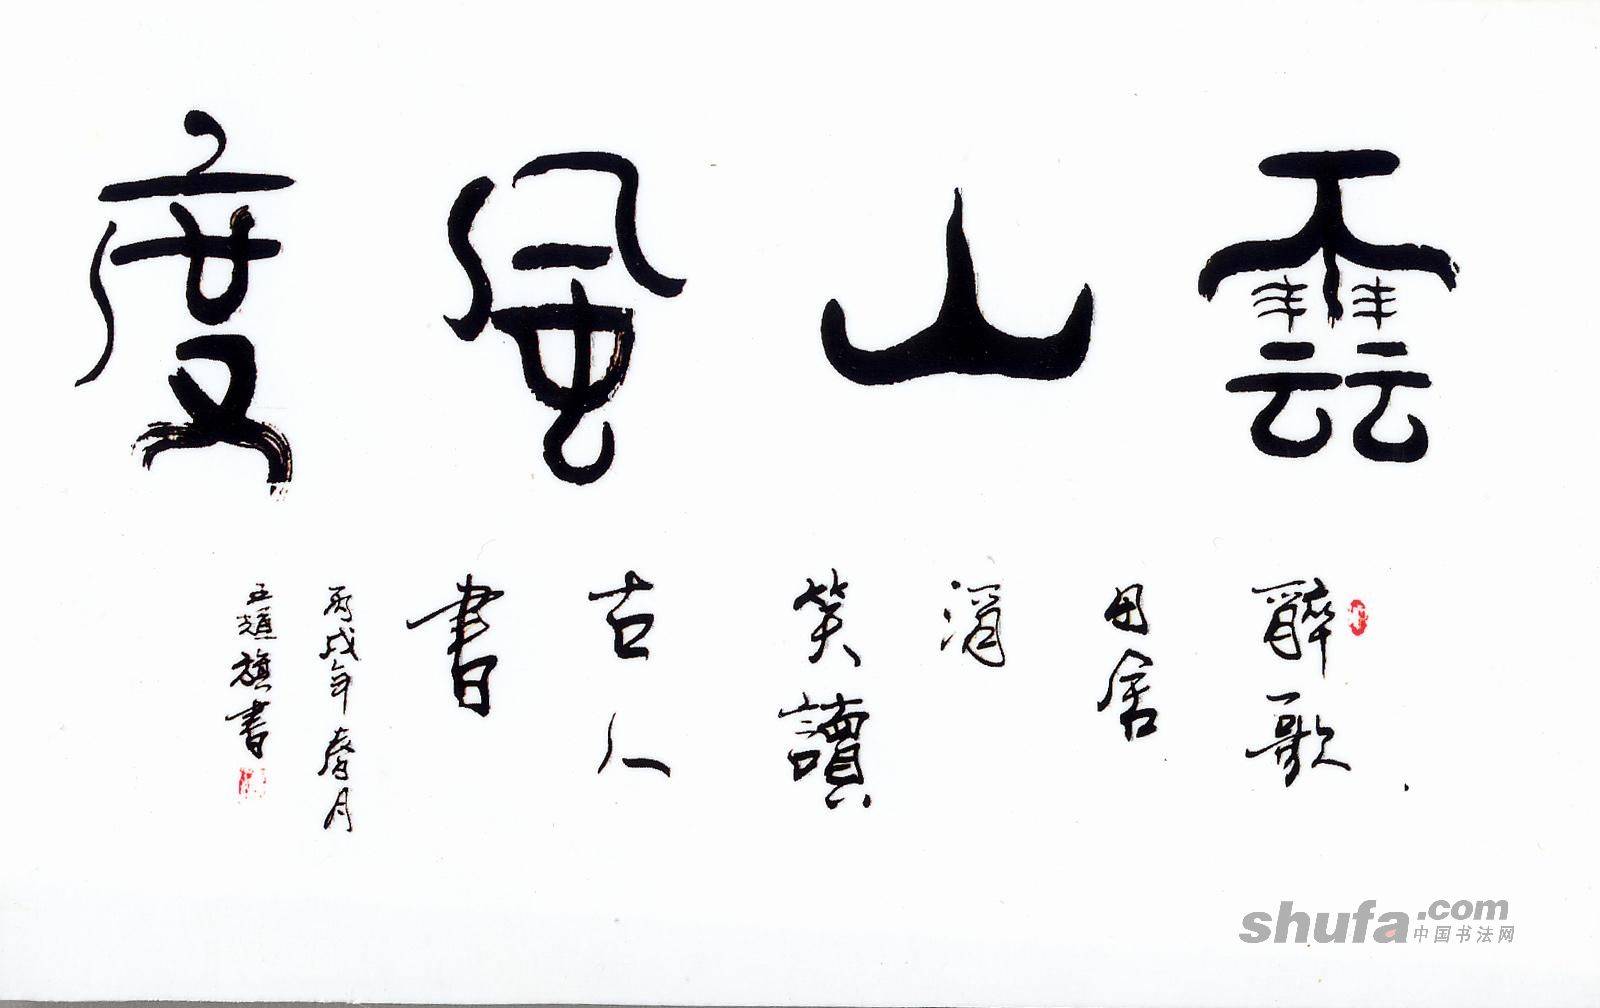 雲山風度
醉歌
田舍
酒
笑讀
古人
書
丙戌年春月
王旗書
shufa.com
中国书法网